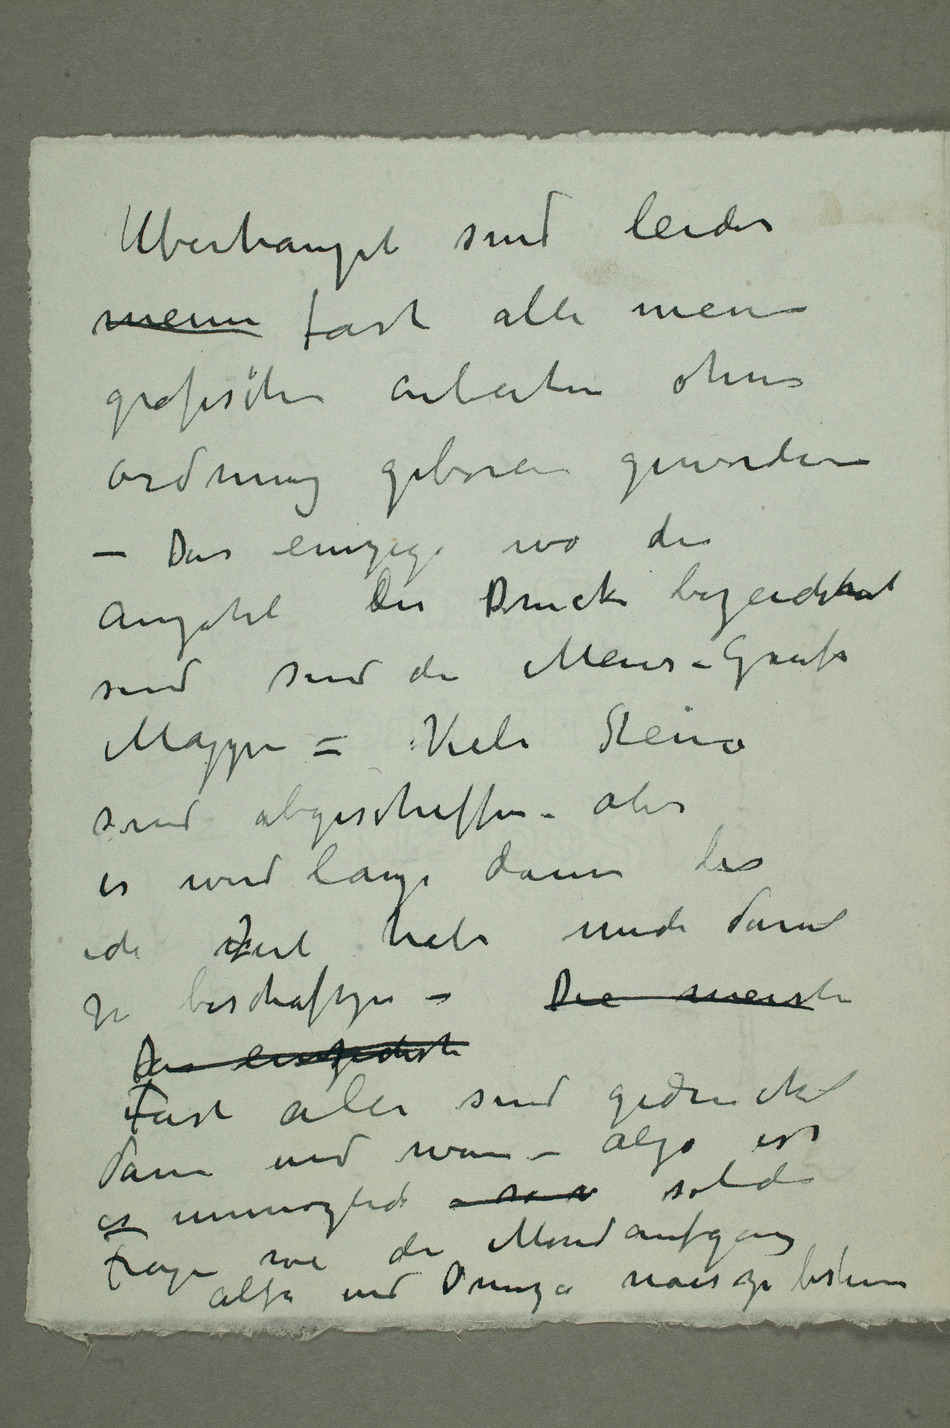 Uberhaupt sind leider
meine fast alle meine
grafischen arbeiten ohne
ordnung geboren geworden
– Das einzige wo die
Anzahl der Drucke bezeichnet
sind sind die Meier-Graefe
Mappe = Viele Steine
sind abgeschliffen – aber
es wird lange dauern bis
ich Zeit habe mich damit
zu beschaftigen – Die meisten
Das
Fast alle sind gedruckt
dann und wann – also ist
es unmöglich – solche
Frage wie die Mondaufgang
alfa und Omega nois zu bestimen